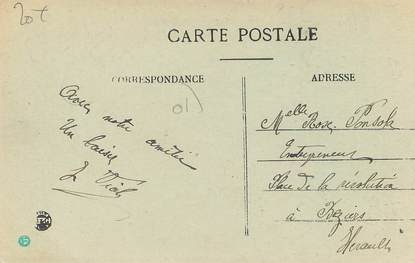 20t
CARTE POSTALE
CORRESPONDANCE
ADRESSE
Avec notre amitié
Un baiser
Melle Rose Fonsola
Entrepreneur
Place de la révolution
à Béziers
Hérault